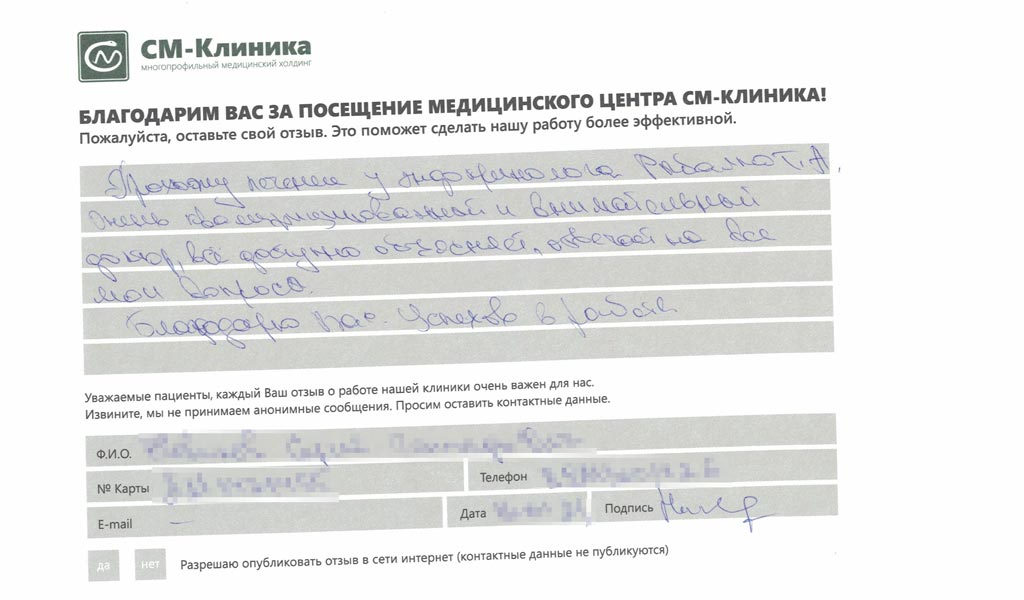 СМ-Клиника
многопрофильный медицинский холдинг
БЛАГОДАРИМ ВАС ЗА ПОСЕЩЕНИЕ МЕДИЦИНСКОГО ЦЕНТРА СМ-КЛИНИКА!
Пожалуйста, оставьте свой отзыв. Это поможет сделать нашу работу более эффективной.
Прохожу лечение у эндокринолога Т.А,
очень квалифицированный и внимательный
доктор, всё доступно объясняет, отвечает на все
мои вопросы.
Благодарю Вас. Успехов в работе
Уважаемые пациенты, каждый Ваш отзыв о работе нашей клиники очень важен для нас.
Извините, мы не принимаем анонимные сообщения. Просим оставить контактные данные.
Ф.И.О.
№ Карты Телефон
E-mail – Дата Подпись
да нет Разрешаю опубликовать отзыв в сети интернет (контактные данные не публикуются)